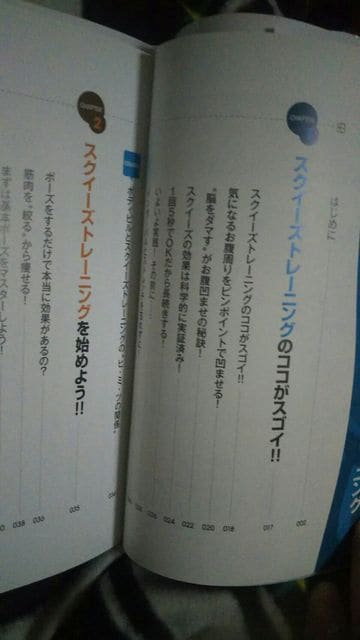 はじめに
002
CHAPTER
スクイーズトレーニングのココがスゴイ!!
017
スクイーズトレーニングのココがスゴイ!!
018
気になるお腹周りをピンポイントで凹ませる!
020
“脳をダマす”がお腹凹ませの秘訣!
022
スクイーズの効果は科学的に実証済み!
024
1回5秒でOKだから長続きする!
026
いよいよ実践!その前に……
ボディ・ビルとスクイーズトレーニングの“ヒ・ミ・ツの関係”
034
CHAPTER 2
スクイーズトレーニングを始めよう!!
035
ポーズをするだけで本当に効果があるの?
036
筋肉を“絞る”から痩せる!
038
まずは基本ポーズをマスターしよう!